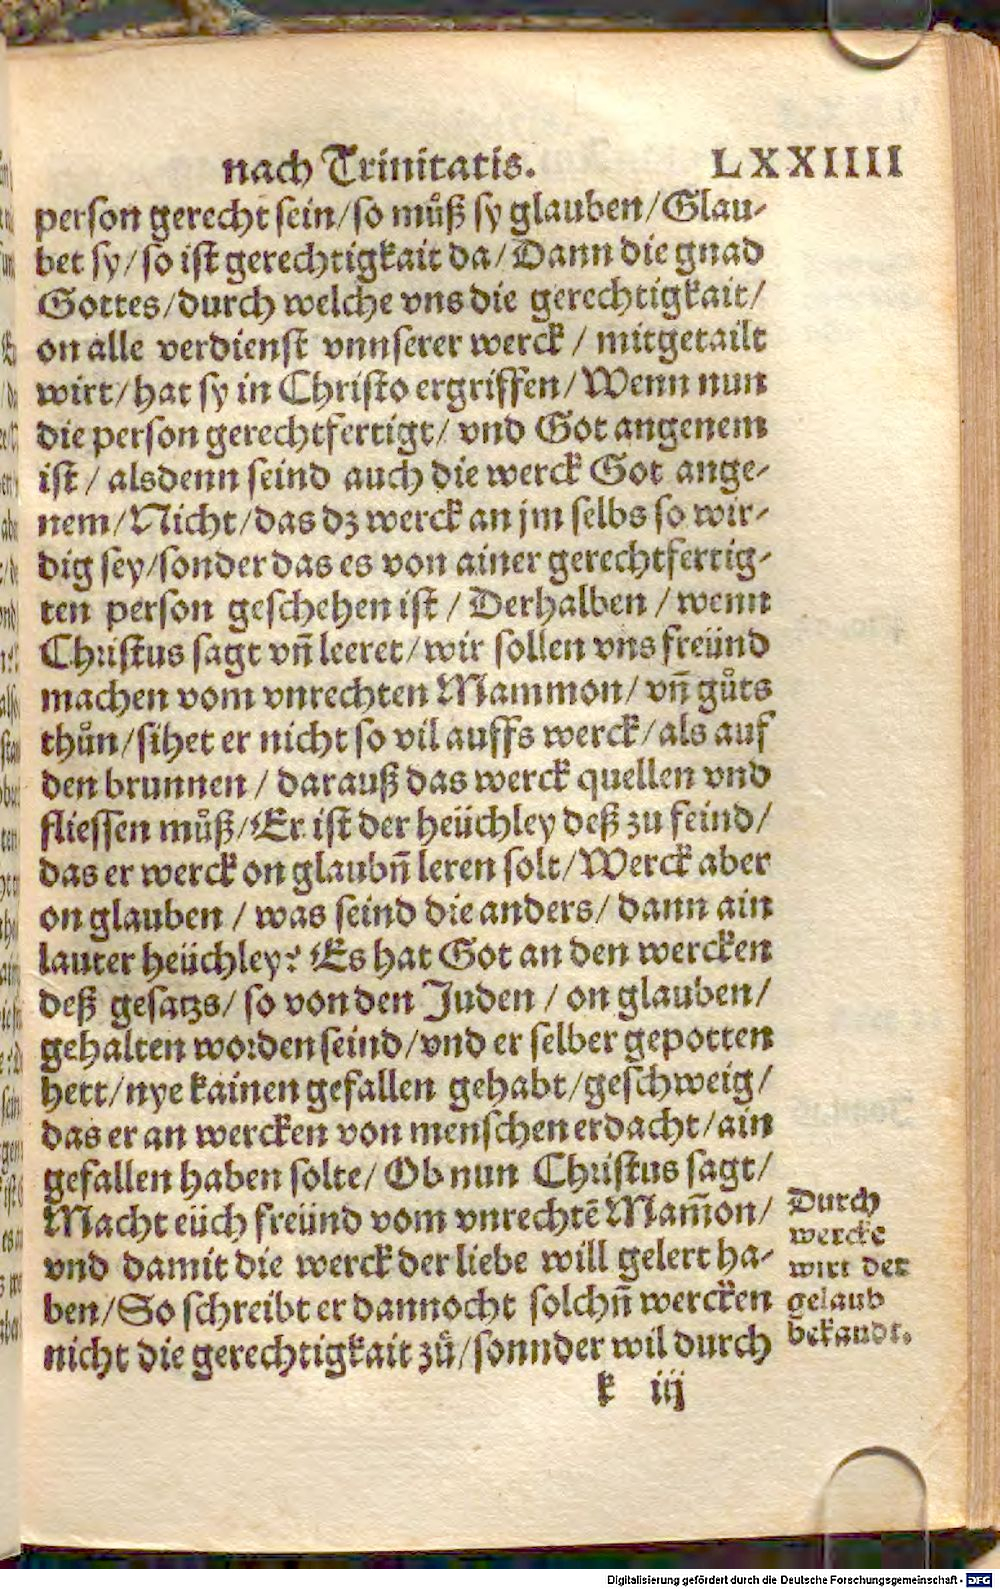 nach Trinitatis. LXXIIII
person gerecht sein/so müß sy glauben/Glau-
bet sy/so ist gerechtigkait da/Dann die gnad
Gottes/durch welche vns die gerechtigkait/
on alle verdienst vnnserer werck/mitgetailt
wirt/hat sy in Christo ergriffen/Wenn nun
die person gerechtfertigt/vnd Got angenem
ist/alsdenn seind auch die werck Got ange-
nem/Nicht/das dz werck an jm selbs so wir-
dig sey/sonder das es von ainer gerechtfertig-
ten person geschehen ist/Derhalben/wenn
Christus sagt vn̄ leeret/wir sollen vns freünd
machen vom vnrechten Mammon/vn̄ gůts
thůn/sihet er nicht so vil auffs werck/als auf
den brunnen/darauß das werck quellen vnd
fliessen můß/Er ist der heüchley deß zu feind/
das er werck on glaubn̄ leren solt/Werck aber
on glauben/was seind die anders/dann ain
lauter heüchley? Es hat Got an den wercken
deß gesatzs/so von den Juden/on glauben/
gehalten worden seind/vnd er selber gepotten
hett/nye kainen gefallen gehabt/geschweig/
das er an wercken von menschen erdacht/ain
gefallen haben solte/Ob nun Christus sagt/
Macht eüch freünd vom vnrechtē Mam̄on/
vnd damit die werck der liebe will gelert ha-
ben/So schreibt er dannocht solchn̄ wercken
nicht die gerechtigkait zů/sonnder wil durch
Durch
wercke
wirt der
gelaub
bekandt.
k iij
Digitalisierung gefördert durch die Deutsche Forschungsgemeinschaft - DFG